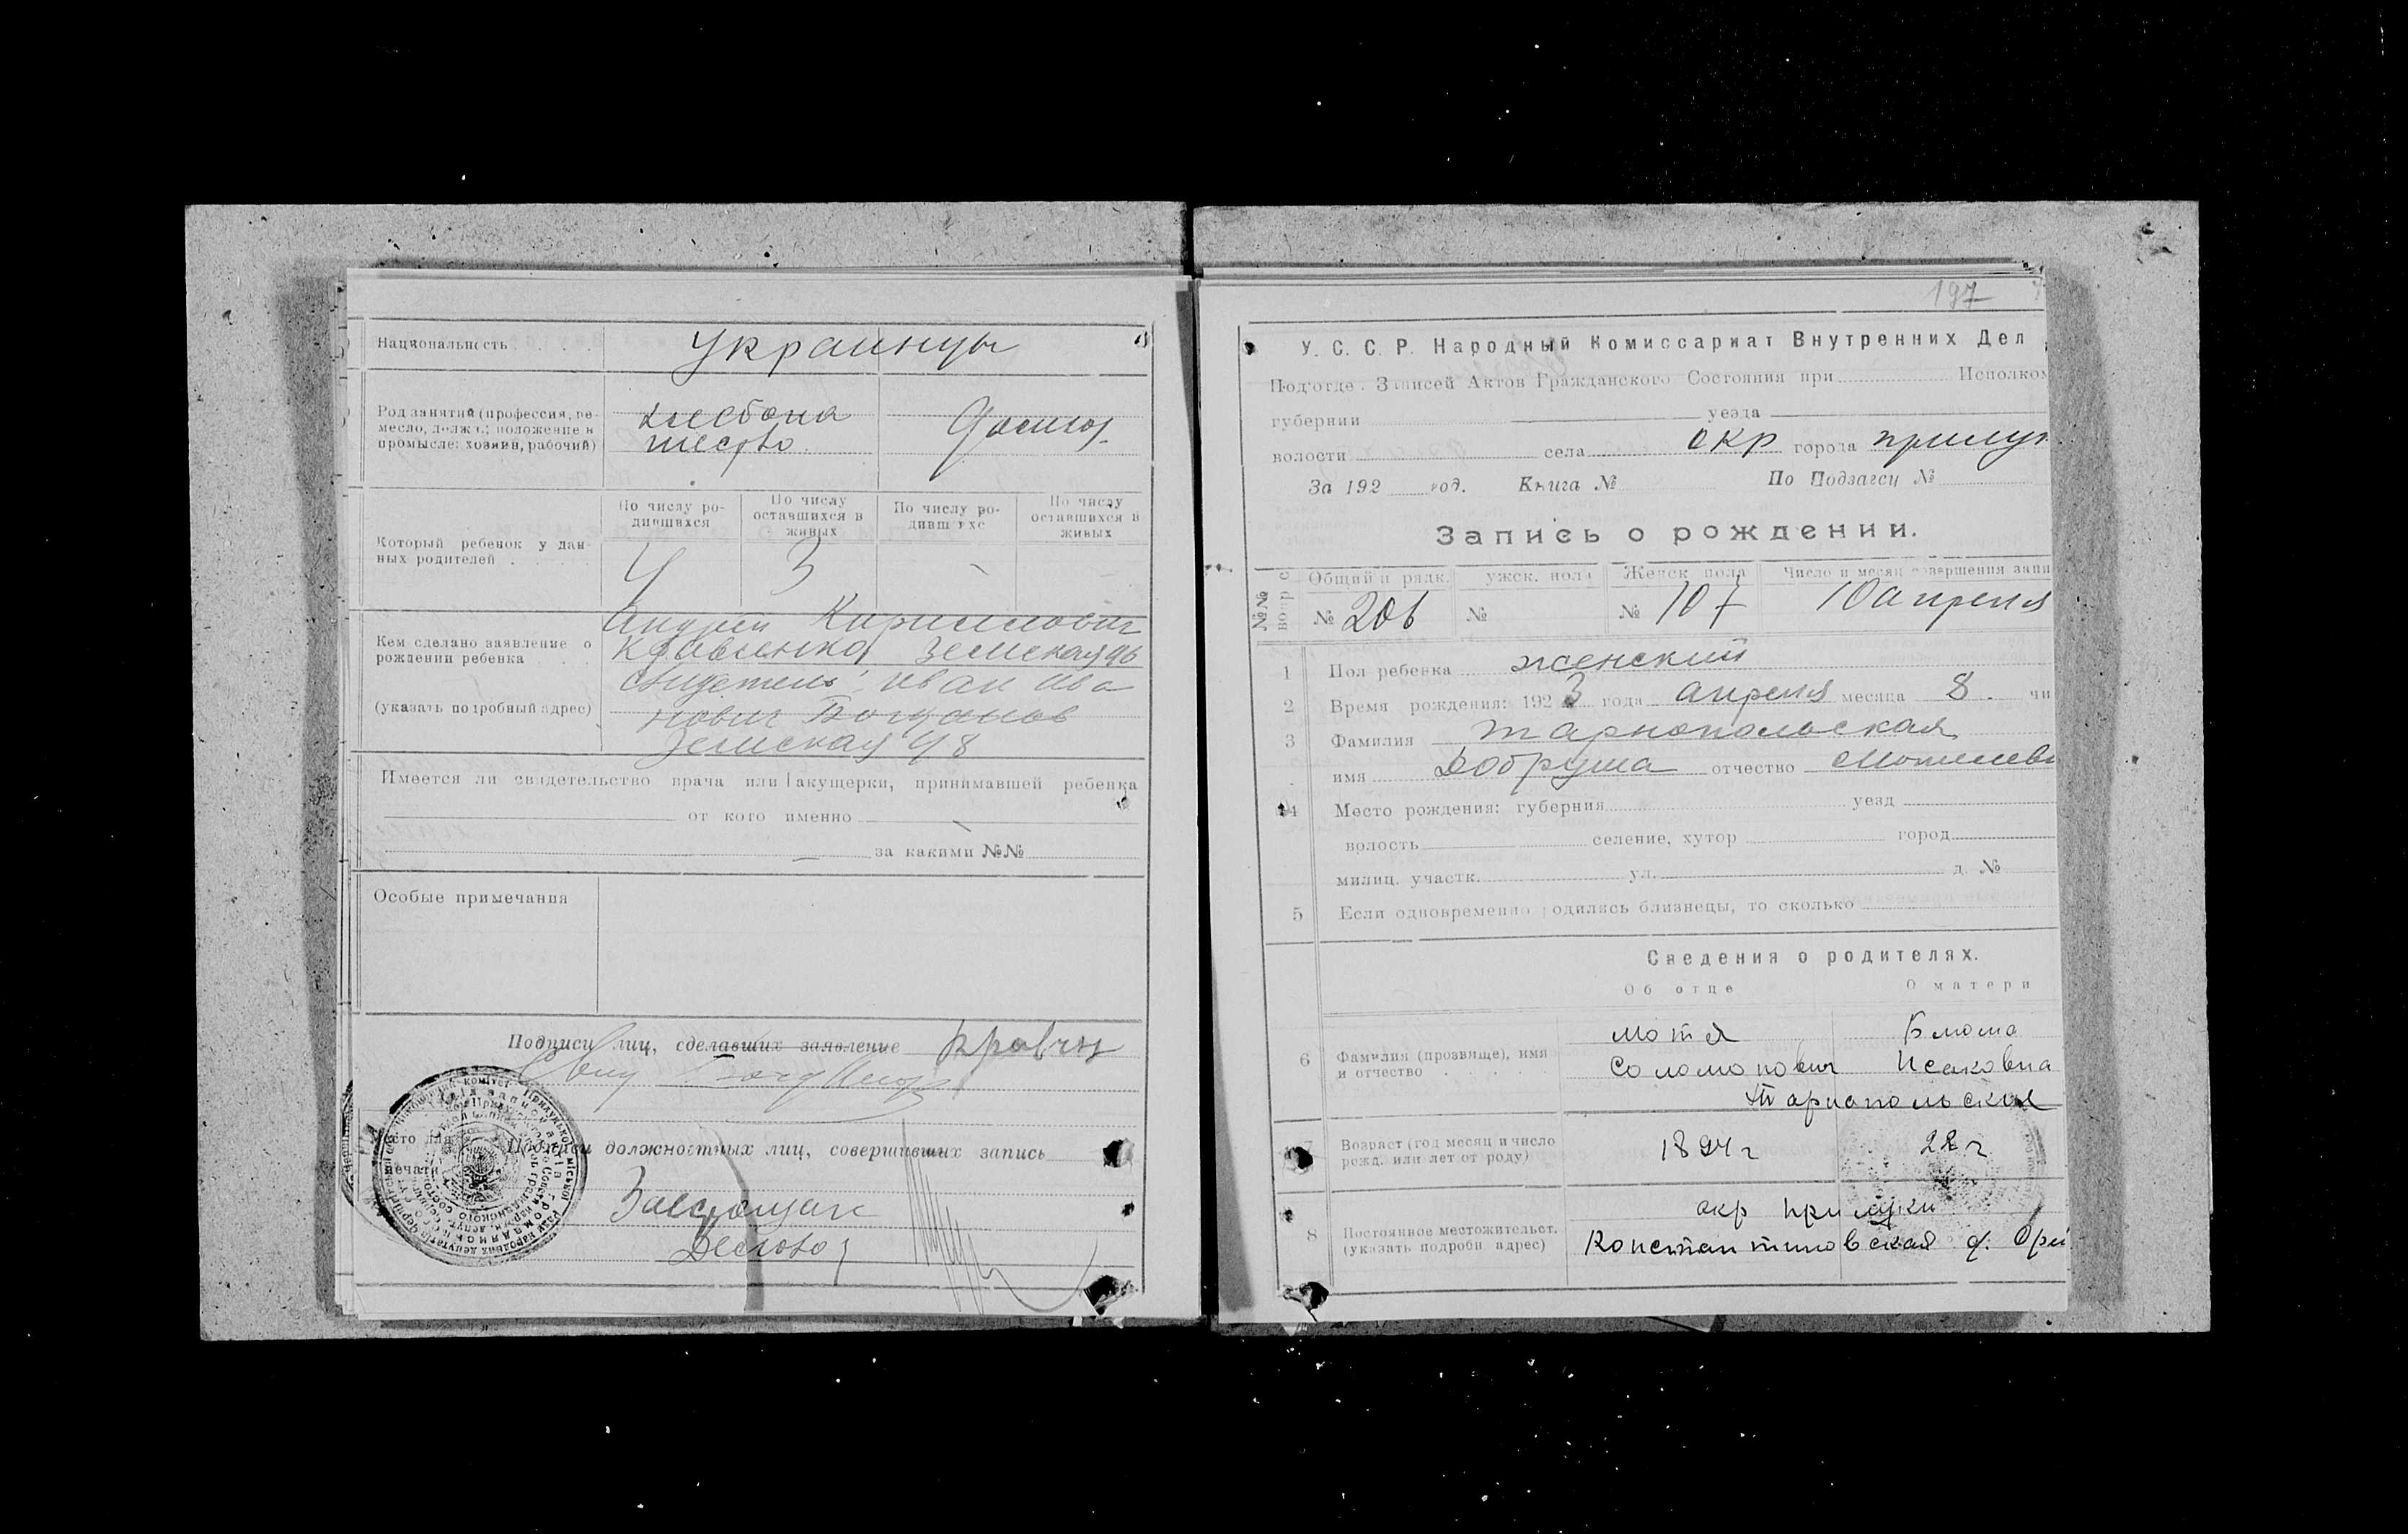 Национальность украинцы
Род занятий (профессия, ре-
месло, должн.; положение в
промысле: хозяин, рабочий)
хлебопа
шество
Который ребенок у дан-
ных родителей
По числу ро-
дившихся
По числу
оставшихся в
живых
По числу ро-
дившихс
По числу
оставшихся в
живых
4 3 - -
Кем сделано заявление о
рождении ребенка
(указать подробный адрес)
Андрей Кириллович
Кравченко Земская 96
свидетель Иван Ива
нович Богданов
Земская 98
Имеется ли свидетельство врача или акушерки, принимавшей ребенка
от кого именно -
- за какими №№
Особые примечания
Подписи лиц, сделавших заявление Кравчн
Место для
печати
Подписи должностных лиц, совершивших запись
Завстолом
197
У. С. С. Р. Народный Комиссариат Внутренних Дел
Под'отде. Записей Актов Гражданского Состояния при Исполком
губернии уезда
волости села окр города прилук
За 192 год. Книга № По Подзагсу №
Запись о рождении.
№№
вопрос
Общий п рядк. ужск. пола Женск пола Число и месяц совершения запи
№ 206 № № 107 10 апреля
1 Пол ребенка женский
2 Время рождения: 1923 года апреля месяца 8 чи
3 Фамилия Тарнопольская
имя Добруша отчество Мотилевн
4 Место рождения: губерния уезд
волость селение, хутор город
милиц. участк. ул. д. №
5 Если одновременно родились близнецы, то сколько
Сведения о родителях.
Об отце О матери
6 Фамилия (прозвище), имя
и отчество
Мотя Блюма
Соломонович Исаковна
Тарнопольския
7 Возраст (год месяц и число
рожд. или лет от роду)
1894 г 22 г
8 Постоянное местожительст.
(указать подробн адрес)
окр Прилуки
Константиновская д.